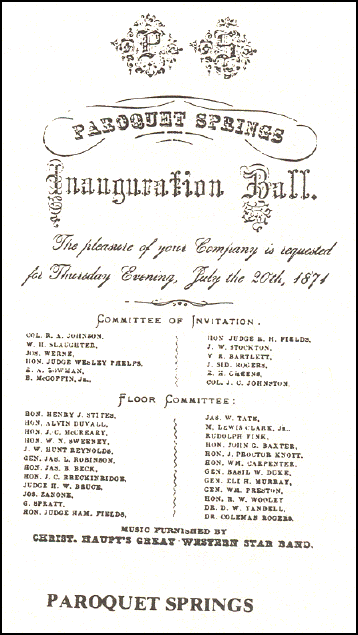 P S
PAROQUET SPRINGS
Inauguration Ball.
The pleasure of your Company is requested
for Thursday Evening, July the 20th, 1871
COMMITTEE OF INVITATION.
COL. R. A. JOHNSON,
W. H. SLAUGHTER,
JOS. WERNE,
HON. JUDGE WESLEY PHELPS,
BOWMAN,
B. McGOFFIN, JR.,
HON JUDGE FIELDS,
J. W. STOCKTON,
BARTLETT,
J. SID. ROGERS,
GREENE,
COL. J. C. JOHNSTON.
FLOOR COMMITTEE:
HON. HENRY J. STITES,
HON. ALVIN DUVALL,
HON. J. C. McCREARY,
HON. W. N. SWEENEY,
J. W. HUNT REYNOLDS,
GEN. JAS. L. ROBINSON,
HON. JAS. B. BECK,
HON. J. C. BRECKINRIDGE,
JUDGE H. W. BRUCE,
JOS. ZANONE,
G. SPRATT,
HON. JUDGE HAM. FIELDS,
JAS. W. TATE,
M. LEWIS CLARK, JR.,
RUDOLPH FINK,
HON. JOHN G. BAXTER,
HON. J. PROCTOR KNOTT,
HON. WM. CARPENTER,
GEN. BASIL W. DUKE,
GEN. ELI H. MURRAY,
GEN. WM. PRESTON,
HON. R. W. WOOLEY
DR. D. W. YANDELL,
DR. COLEMAN ROGERS.
MUSIC FURNISHED BY
CHRIST. HAUPT'S GREAT WESTERN STAR BAND.
PAROQUET SPRINGS